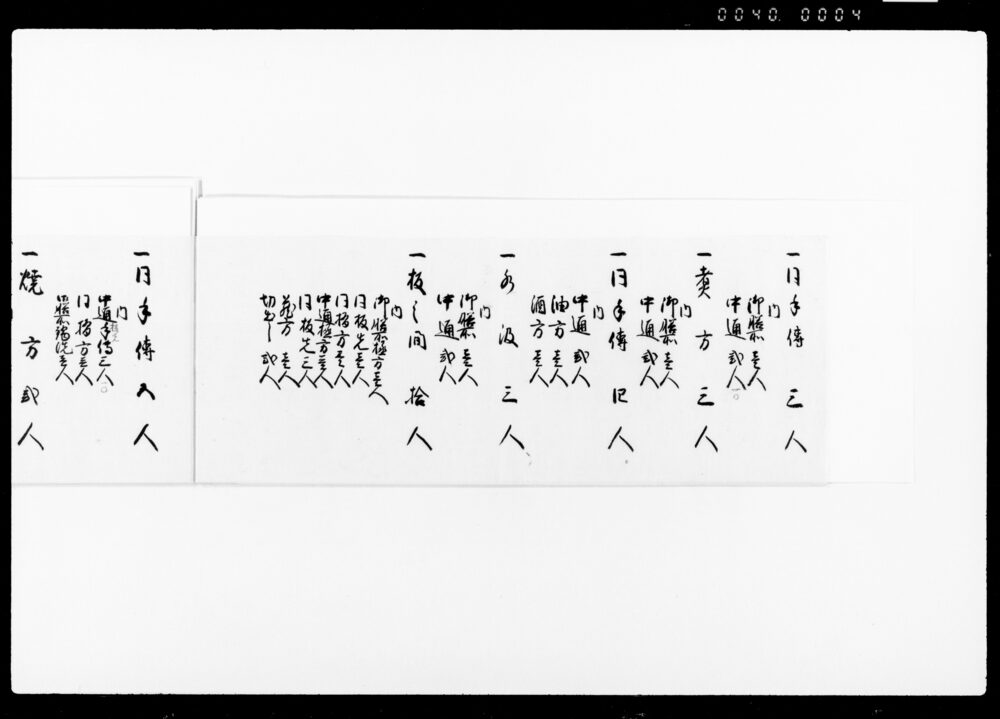 0040.0004
一同手傳 三人
内
御膳 壱人
中通 弐人
一煮方 三人
内
御膳 壱人
中通 弐人
一同手傳 四人
内
中通 弐人
油方 壱人
酒方 壱人
一水汲 三人
内
御膳 壱人
中通 弐人
一板之間 拾人
内
御膳 方壱人
同板先壱人
同 方壱人
中通 方壱人
同板先三人
方壱人
切 弐人
一同手傳 五人
内
中通手傳三人
同 方壱人
壱人
一焼方 弐人